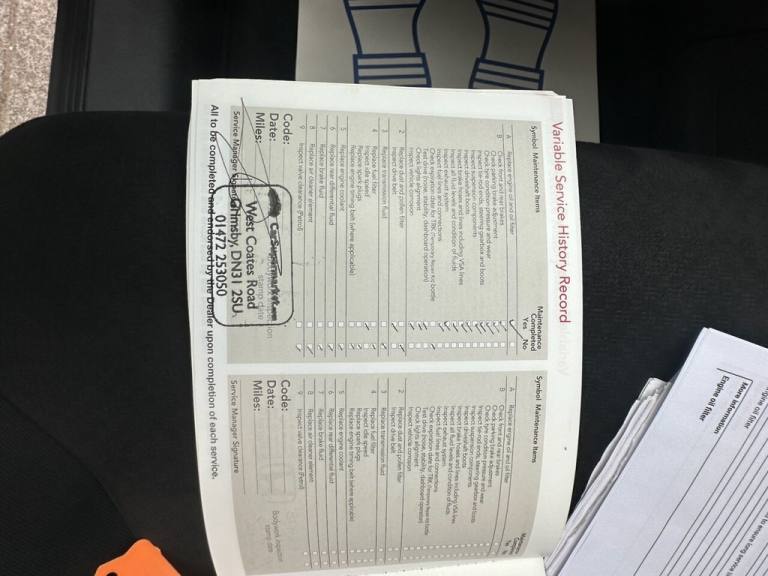 Variable Service History Record
Symbol Maintenance Items
Maintenance
Completed
Yes No
A Replace engine oil and oil filter
B Check front and rear brakes
Check parking brake adjustment
Check tyre condition pressure and wear
Inspect tie rod ends, steering gearbox and boots
Inspect suspension components
Inspect driveshaft boots
Inspect brake hoses and lines including VSA lines
Inspect all fluid levels and condition of fluids
Inspect exhaust system
Inspect fuel lines and connections
Check expiration date for TRK (temporary repair kit) bottle
Test drive (noise, stability, dashboard operation)
Check lights alignment
Inspect vehicle corrosion
2 Replace dust and pollen filter
Inspect drive belt
3 Replace transmission fluid
4 Replace fuel filter
Inspect idle speed
Replace spark plugs
Replace engine timing belt (where applicable)
5 Replace engine coolant
6 Replace rear differential fluid
7 Replace brake fluid
8 Replace air cleaner element
9 Inspect valve clearance (Petrol)
Code:
Date:
Miles:
Service Manager
stamp date
West Coates Road
Grimsby, DN31 2SU
01472 253050
Symbol Maintenance Items
A Replace engine oil and oil filter
B Check front and rear brakes
Check parking brake adjustment
Check tyre condition pressure and wear
Inspect tie rod ends, steering gearbox and boots
Inspect suspension components
Inspect driveshaft boots
Inspect brake hoses and lines including VSA lines
Inspect all fluid levels and condition of fluids
Inspect exhaust system
Inspect fuel lines and connections
Check expiration date for TRK (temporary repair kit) bottle
Test drive (noise, stability, dashboard operation)
Check lights alignment
Inspect vehicle corrosion
2 Replace dust and pollen filter
Inspect drive belt
3 Replace transmission fluid
4 Replace fuel filter
Inspect idle speed
Replace spark plugs
Replace engine timing belt (where applicable)
5 Replace engine coolant
6 Replace rear differential fluid
7 Replace brake fluid
8 Replace air cleaner element
9 Inspect valve clearance (Petrol)
Code:
Date:
Miles:
Bodywork Inspection
stamp date
Service Manager Signature
All to be completed and endorsed by the Dealer upon completion of each service.
More information
Engine oil filter